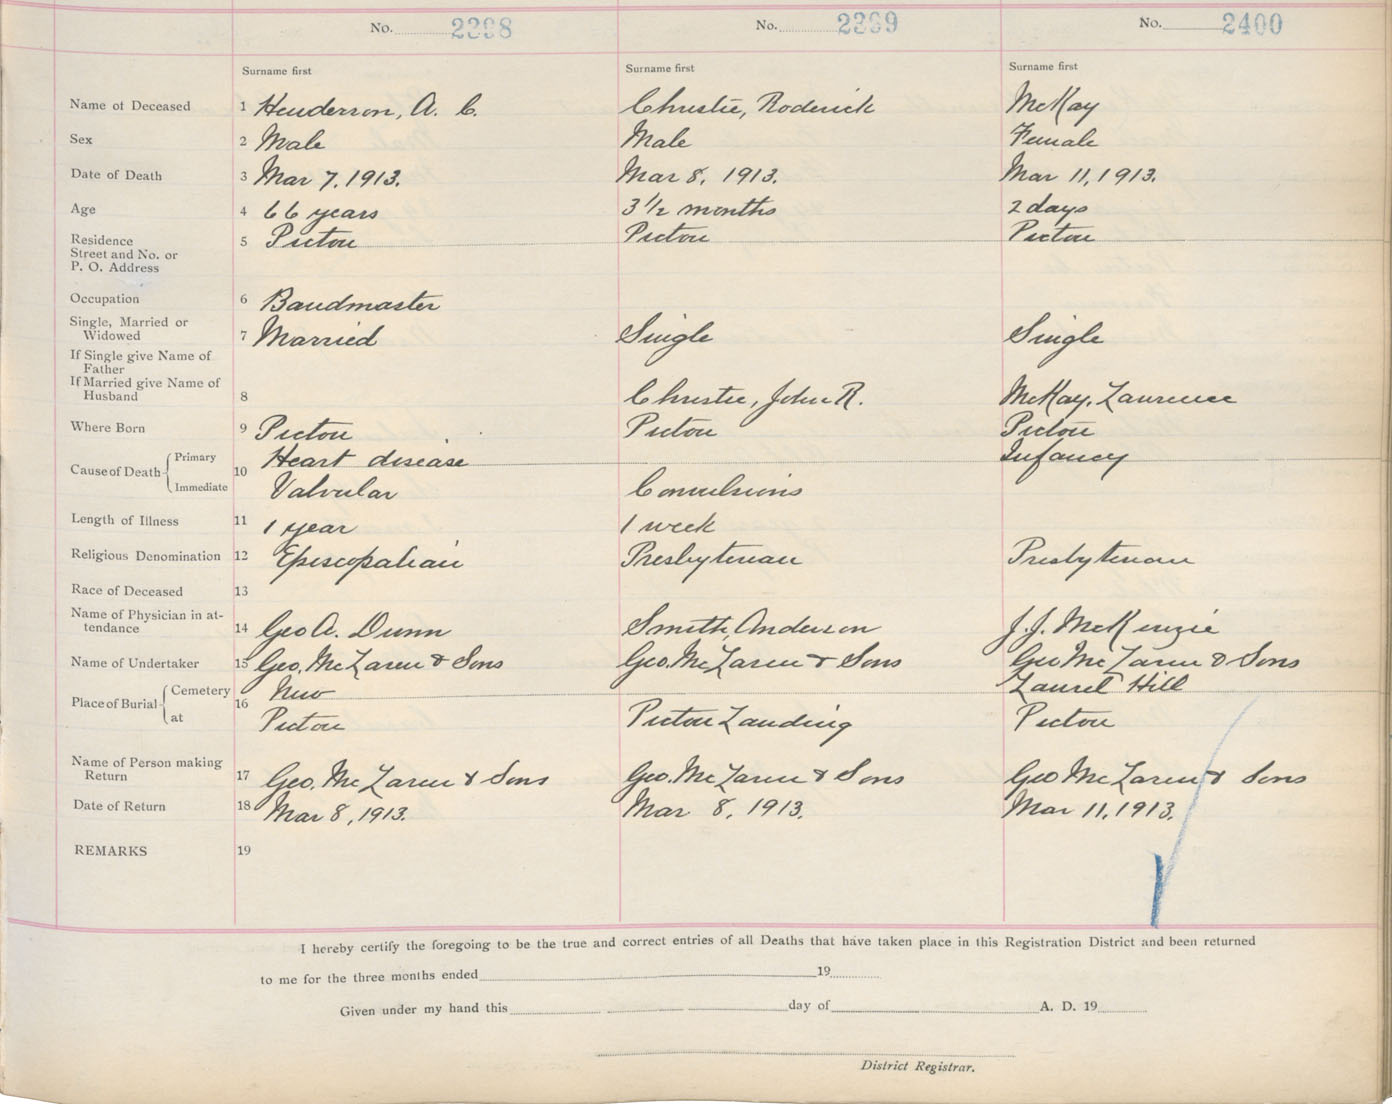 No. 2398 No. 2399 No. 2400
Surname first Surname first Surname first
Name of Deceased 1 Henderson, A. C. Christie, Roderick McKay
Sex 2 Male Male Female
Date of Death 3 Mar 7, 1913. Mar 8, 1913. Mar 11, 1913.
Age 4 66 years 3 1/2 months 2 days
Residence 5 Pictou Pictou Pictou
Street and No. or
P. O. Address
Occupation 6 Bandmaster
Single, Married or
Widowed 7 Married Single Single
If Single give Name of
Father
If Married give Name of
Husband 8 Christie, John R. McKay, Lawrence
Where Born 9 Pictou Pictou Pictou
Cause of Death Primary 10 Heart disease Infancy
Immediate Valvular Convulsions
Length of Illness 11 1 year 1 week
Religious Denomination 12 Episcopalian Presbyterian Presbyterian
Race of Deceased 13
Name of Physician in at-
tendance 14 Geo A. Dunn Smith Anderson J. J. McKenzie
Name of Undertaker 15 Geo. McLaren & Sons Geo. McLaren & Sons Geo McLaren & Sons
Place of Burial Cemetery 16 New Laurel Hill
at Pictou Pictou Landing Pictou
Name of Person making
Return 17 Geo. McLaren & Sons Geo. McLaren & Sons Geo McLaren & Sons
Date of Return 18 Mar 8, 1913. Mar 8, 1913. Mar 11, 1913.
REMARKS 19
I hereby certify the foregoing to be the true and correct entries of all Deaths that have taken place in this Registration District and been returned
to me for the three months ended 19
Given under my hand this day of A. D. 19
District Registrar.